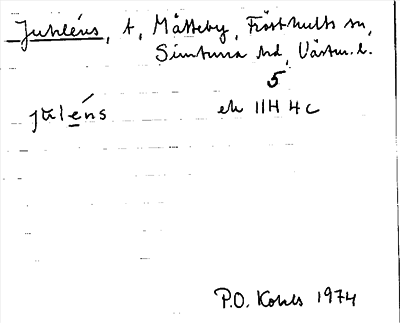 Juhléns, t, Måtteby, Frösthults sn,
Simtuna hd, Västm. l.
5
jūléns ek 11H 4c
P.O. Kohls 1974